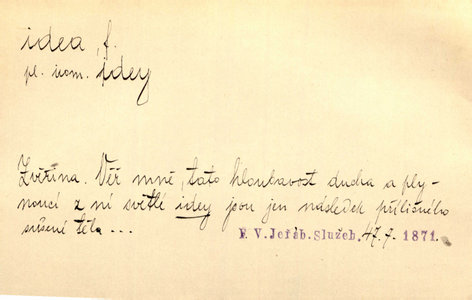 idea, f.
pl. nom. idey
Zvěřina. Věř mně, tato hloubavost ducha a ply-
noucí z ní světlé idey jsou jen následek přílišného
sušené těla ...
F. V. Jeřáb. Služeb. 47.7. 1871.